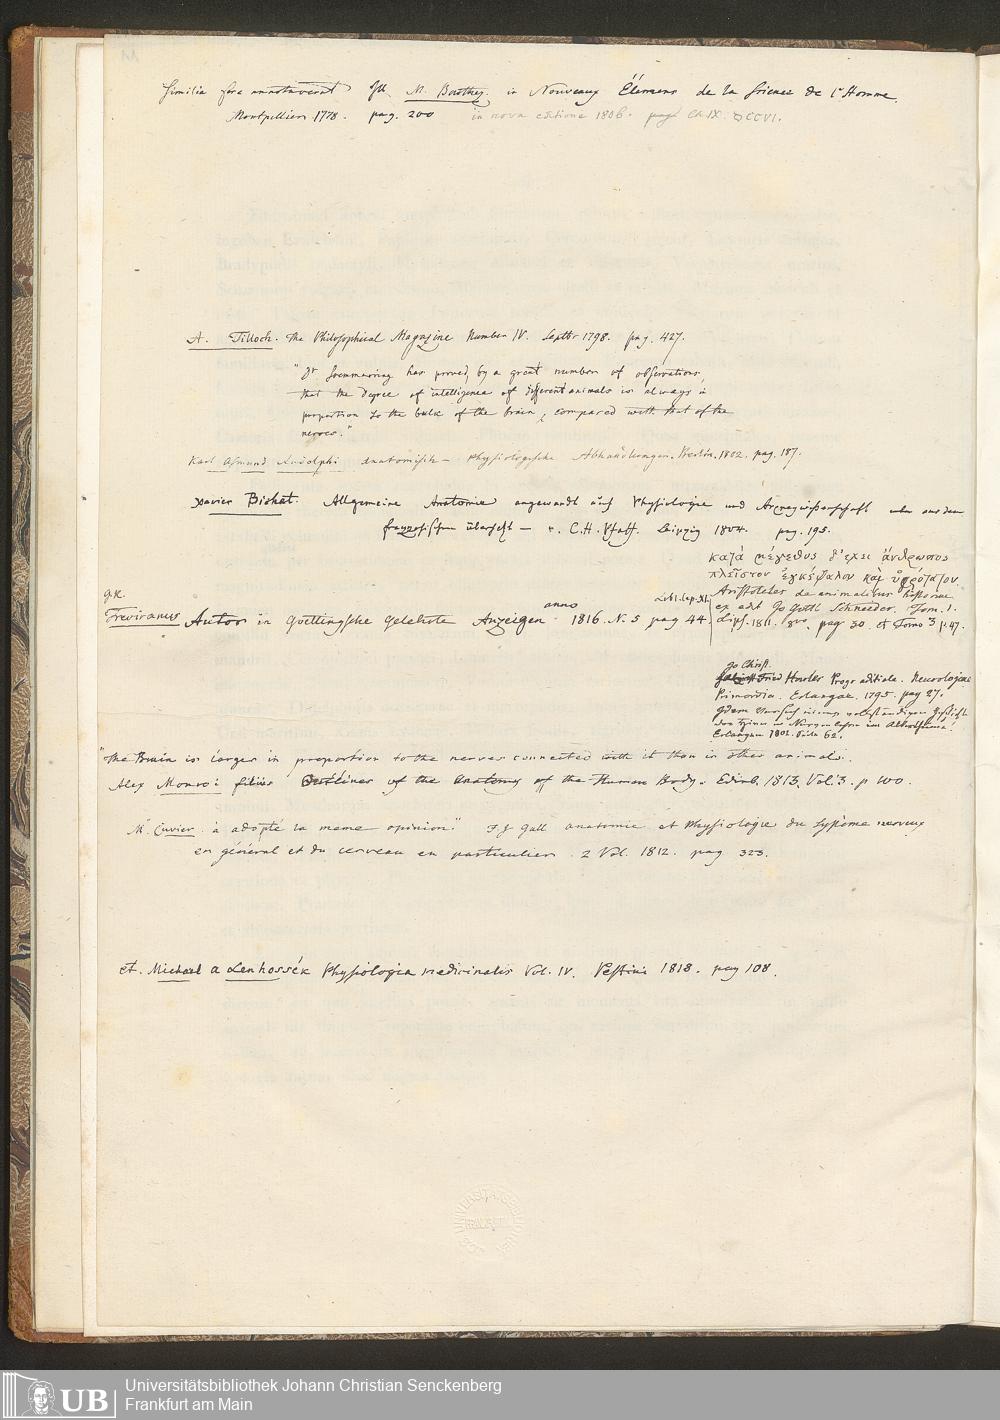 Similia fere annotaverat Jll. M. Barthez. in Nouveaux Élemens de la Science de l'Homme.
Montpellier 1778. pag. 200 in nova editione 1806. pag. CCVI.
A. Tilloch. the Philosophical Magazine Number IV. Septbr 1798. pag. 427.
"Dr Soemmerring has proved, by a great number of observations,
that the degree of intelligence of different animals is always in
proportion to the bulk of the brain, compared with that of the
nerves."
Karl Asmund Rudolphi anatomisch-physiologische Abhandlungen. Berlin. 1802. pag. 187.
Xavier Bichat. Allgemeine Anatomie angewandt auf Physiologie und Arzneywissenschaft aus dem
französischen übersetzt - v. C. H. Pfaff. Leipzig 1804. pag. 195.
κατὰ μέγεθος δ'ἔχει ἄνθρωπος
πλεῖστον ἐγκέφαλον καὶ ὑγρότατον.
Aristoteles de animalibus historiae
Lib I. Cap. XI. ex edit Jo Gottl Schneider. Tom. I.
Lips. 1811. 8vo. pag 30. et Tomo 3 p. 47.
G. R.
Treviranus Autor in Goettingsche Gelehrte Anzeigen anno 1816. N. 5 pag 44.
Jo Christ.
Fried Harles Progr aditiale. Neurologiae
Primordia. Erlangae. 1795. pag 27.
Idem Versuch einer vollständigen Geschichte
der Hirn und Nervenlehre im Alterthume.
Erlangen 1801. Seite 62.
"the Brain is larger in proportion to the nerves connected with it than in other animals.
Alex Monroi filius Outlines of the Anatomy of the Human Body. Edinb. 1813. Vol. 3. p 100.
Mr Cuvier a adopté la meme opinion." F. J. Gall anatomie et Physiologie du Système nerveux
en général et du cerveau en particulier. 2 Vol. 1812. pag 323.
et. Michael a Lenhossék Physiologia medicinalis Vol. IV. Pestini 1818. pag 108.
UB
Universitätsbibliothek Johann Christian Senckenberg
Frankfurt am Main